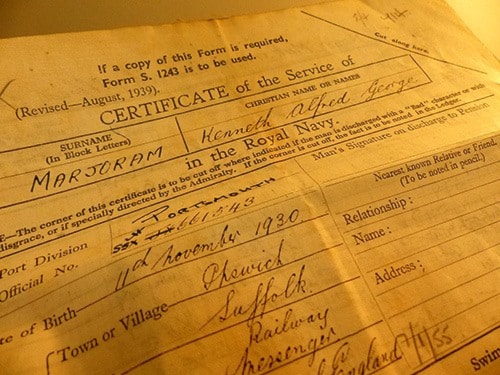 If a copy of this Form is required,
Form S. 1243 is to be used.
Cut along here.
(Revised—August, 1939).
CERTIFICATE of the Service of
SURNAME
(In Block Letters)
CHRISTIAN NAME OR NAMES
MARJORAM
Kenneth Alfred George
in the Royal Navy.
E—The corner of this certificate is to be cut off where indicated if the man is discharged with a "Bad" character or with
disgrace, or if specially directed by the Admiralty. If the corner is cut off, the fact is to be noted in the Ledger.
Man's Signature on discharge to Pension
Port Division
PORTSMOUTH
Official No.
SSX 661543
Nearest known Relative or Friend.
(To be noted in pencil.)
Relationship:
Name:
Address:
te of Birth
11th November 1930
Town or Village
Ipswich
Suffolk
Railway
Messenger
England
/1/55
Swim